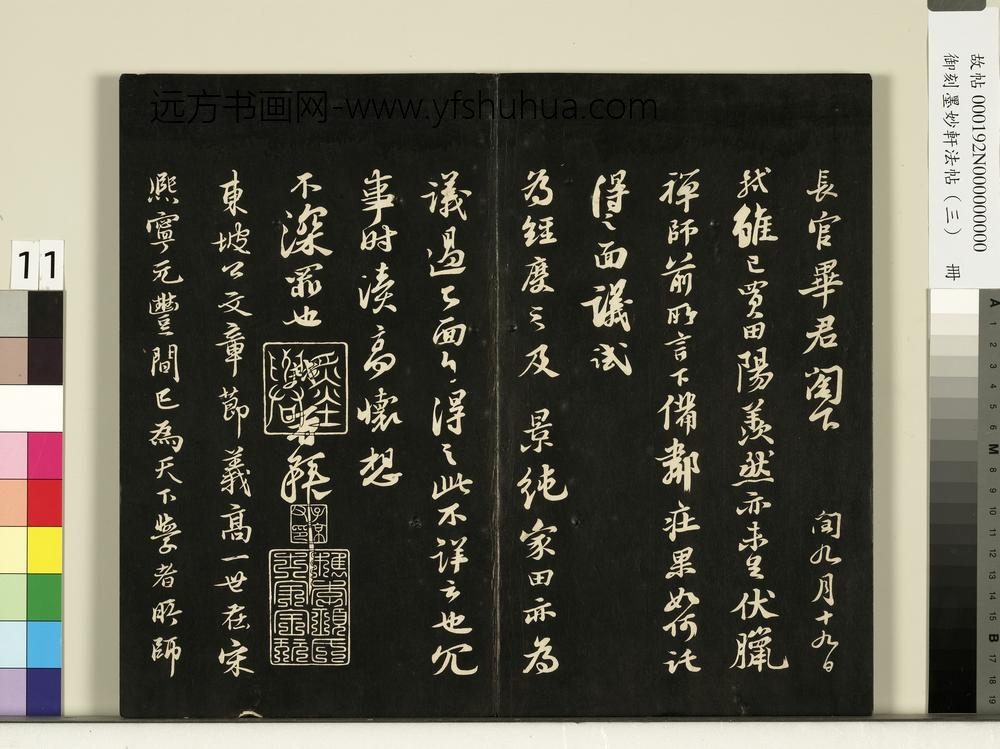 長官畢君閣下　閏九月十九日
軾雖已買田陽羨然亦未足伏臘
禪師前所言下備鄰莊果如何託
得之面議試
為經度之及　景純家田亦為
議過已面白得之此不詳云也冗
事時瀆高懷想
不深罪也
再拜
東坡公文章節義高一世在宋
熈寧元豐間已為天下學者所師
远方书画网-www.yfshuhua.com
故帖 000192N000000000
御刻墨妙軒法帖（三） 冊
11
A
1
2
3
4
5
6
M
8
9
10
11
12
13
14
15
B
17
18
19